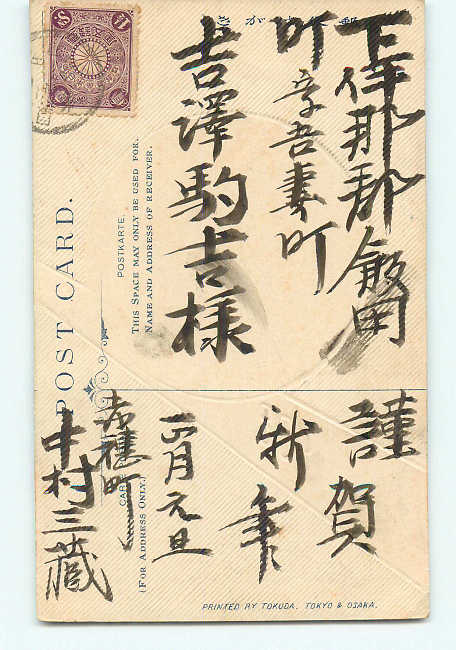 下伊那郡飯田
町字吾妻町
吉澤駒吉様
謹賀
新年
正月元旦
赤穂町
中村三蔵
POST CARD.
POSTKARTE
THIS SPACE MAY ONLY BE USED FOR.
NAME AND ADDRESS OF RECEIVER.
(FOR ADDRESS ONLY.)
PRINTED BY TOKUDA. TOKYO & OSAKA.